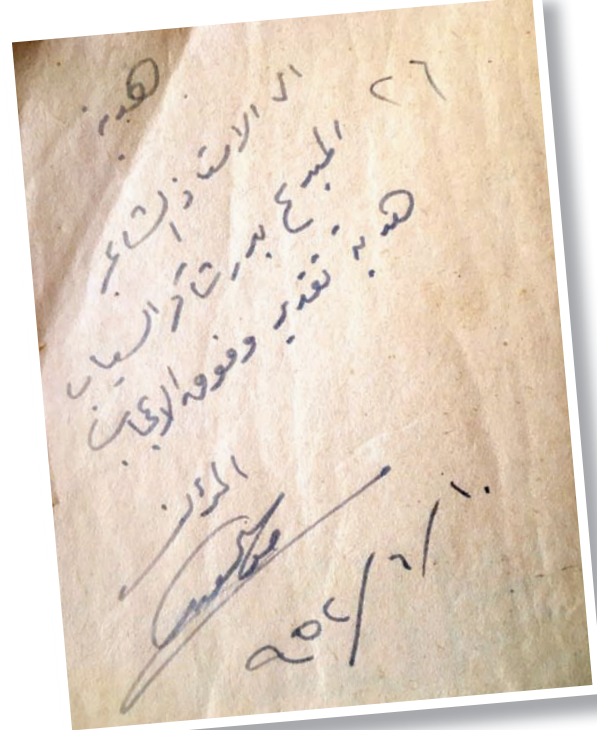 هدية
٢٦
الى الاستاذ الشاعر
المبدع بدر شاكر السياب
هدية تقدير وفوق الاعجاب
المؤلف
١٠/٦/٩٥٢